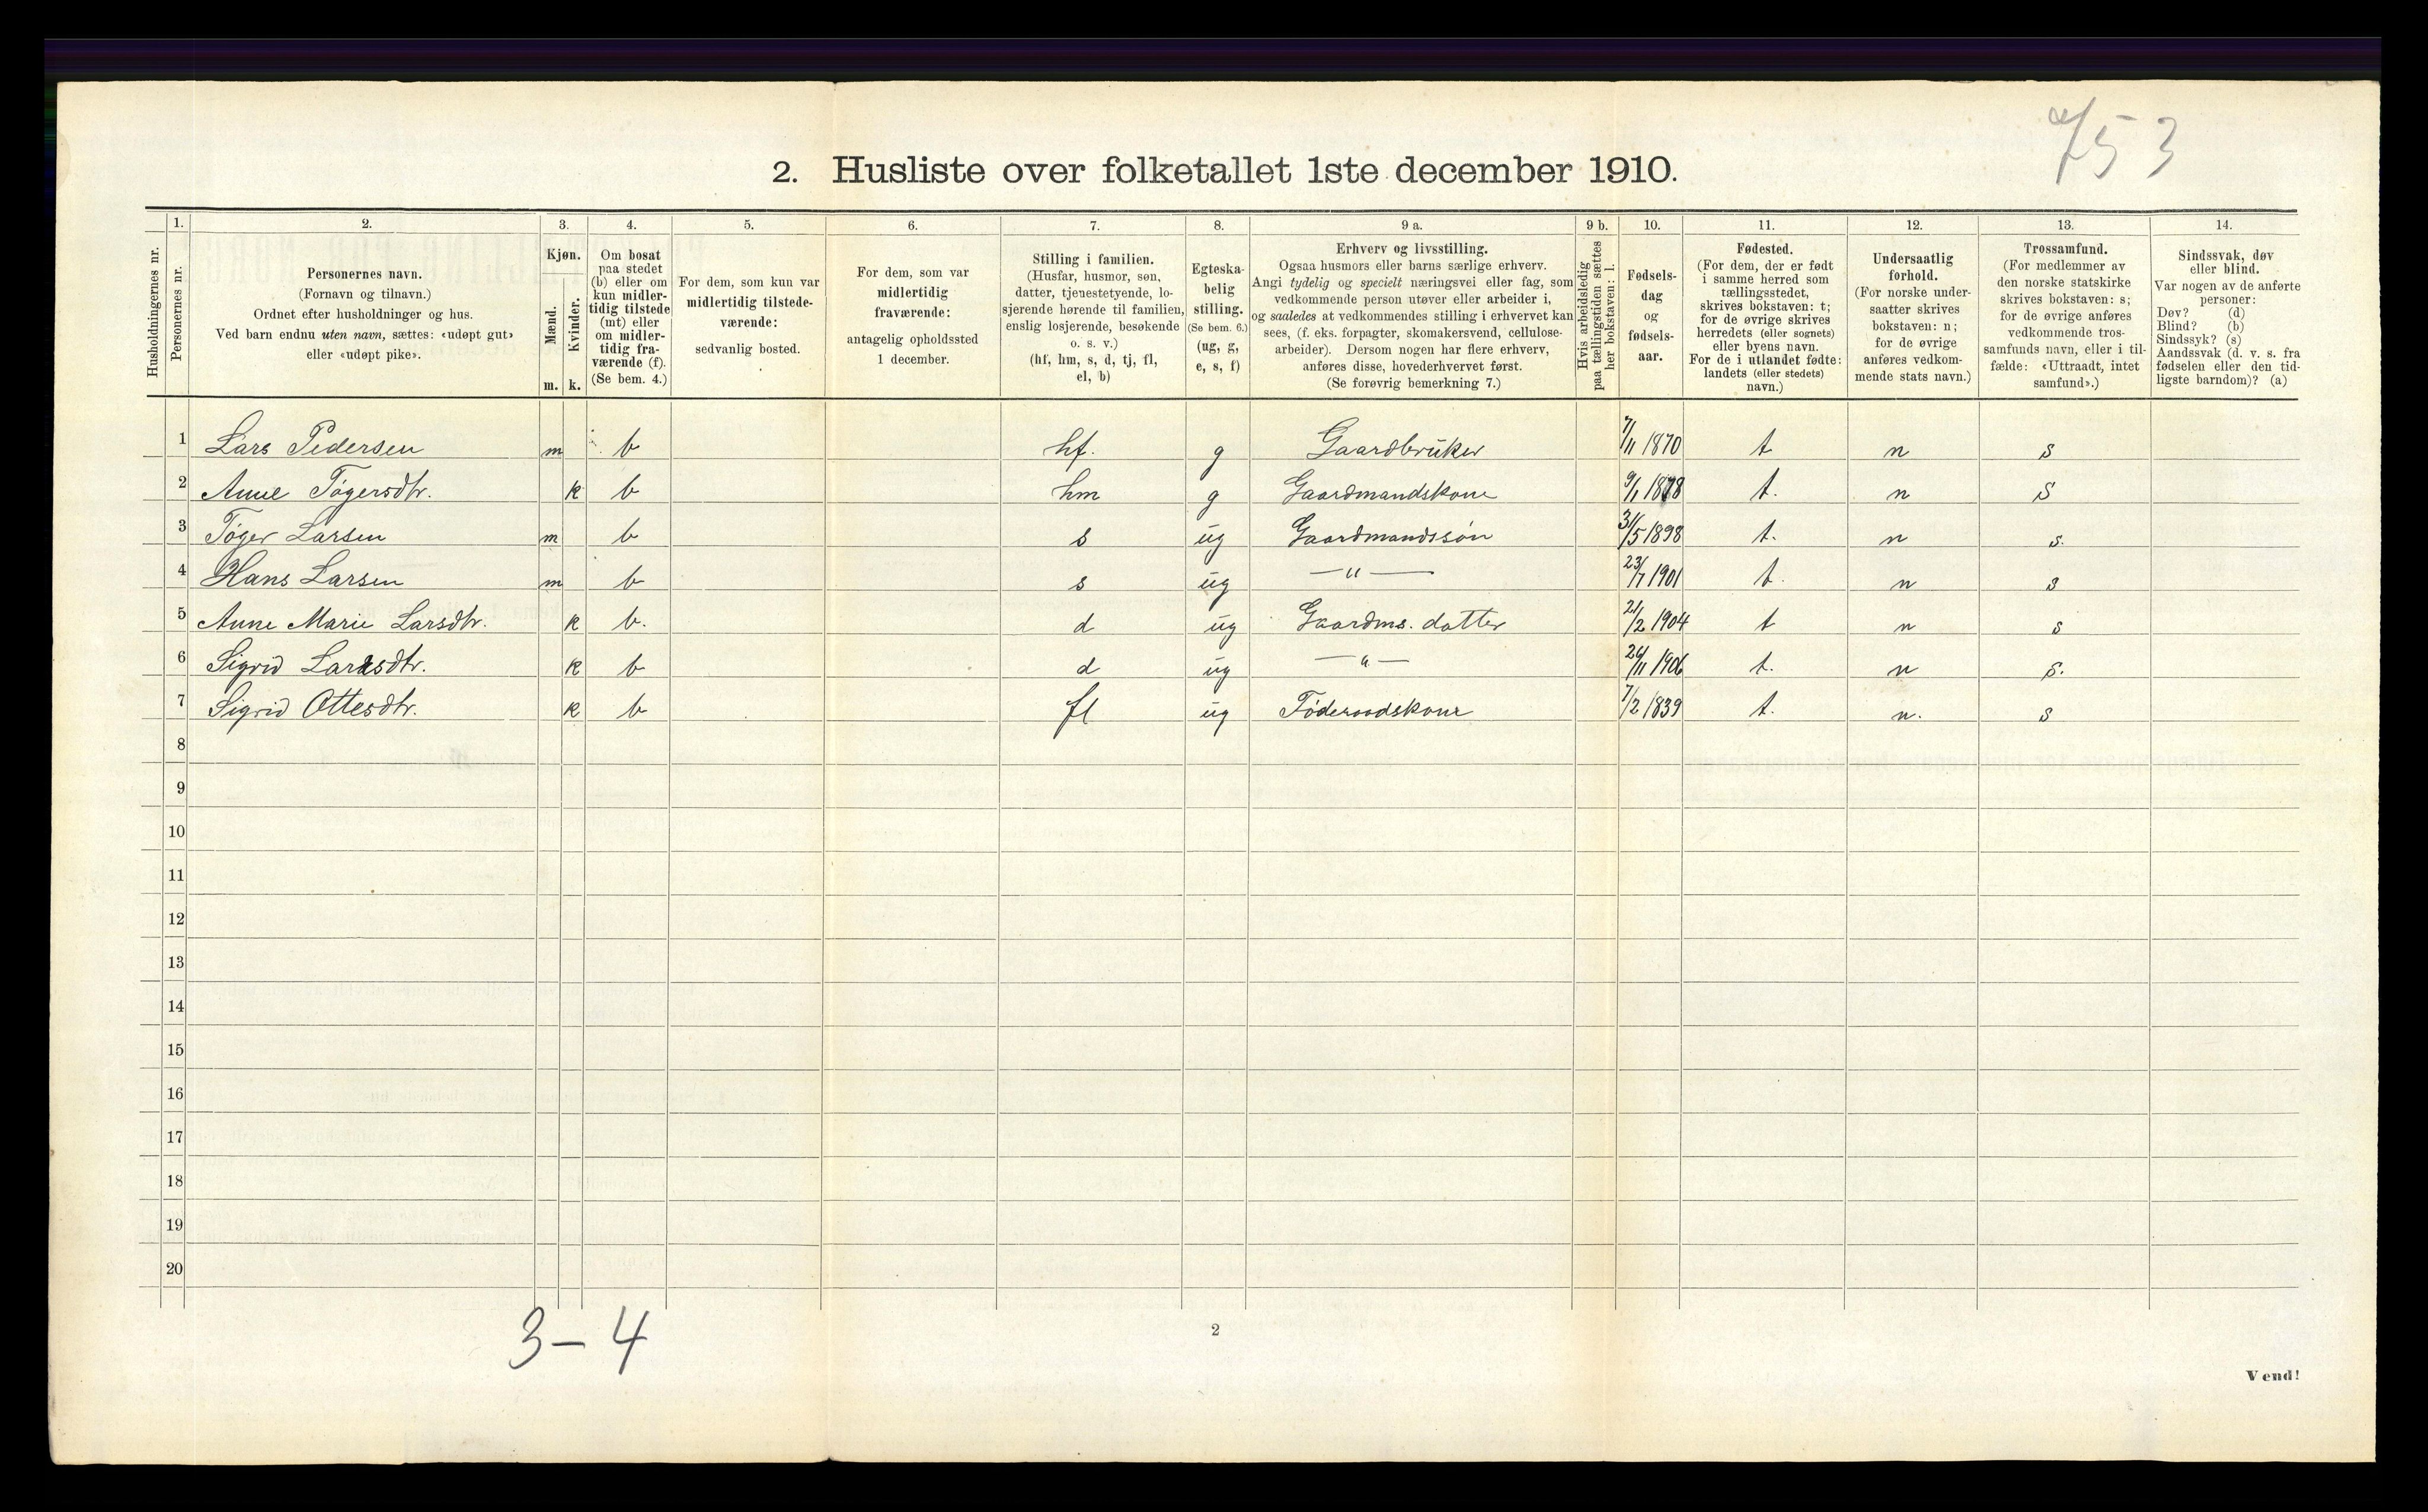 753
2. Husliste over folketallet 1ste december 1910.
Husholdningernes nr.
1.
Personernes nr.
2.
Personernes navn.
(Fornavn og tilnavn.)
Ordnet efter husholdninger og hus.
Ved barn endnu uten navn, sættes: «udøpt gut»
eller «udøpt pike».
3.
Kjøn.
Mænd.
m.
Kvinder.
k.
4.
Om bosat
paa stedet
(b) eller om
kun midler-
tidig tilstede
(mt) eller
om midler-
tidig fra-
værende (f).
(Se bem. 4.)
5.
For dem, som kun var
midlertidig tilstede-
værende:
sedvanlig bosted.
6.
For dem, som var
midlertidig
fraværende:
antagelig opholdssted
1 december.
7.
Stilling i familien.
(Husfar, husmor, søn,
datter, tjenestetyende, lo-
sjerende hørende til familien,
enslig losjerende, besøkende
o. s. v.)
(hf, hm, s, d, tj, fl,
el, b)
8.
Egteska-
belig
stilling.
(Se bem. 6.)
(ug, g,
e, s, f)
9 a.
Erhverv og livsstilling.
Ogsaa husmors eller barns særlige erhverv.
Angi tydelig og specielt næringsvei eller fag, som
vedkommende person utøver eller arbeider i,
og saaledes at vedkommendes stilling i erhvervet kan
sees, (f. eks. forpagter, skomakersvend, cellulose-
arbeider). Dersom nogen har flere erhverv,
anføres disse, hovederhvervet først.
(Se forøvrig bemerkning 7.)
9 b.
Hvis arbeidsledig
paa tællingstiden sættes
her bokstaven: l.
10.
Fødsels-
dag
og
fødsels-
aar.
11.
Fødested.
(For dem, der er født
i samme herred som
tællingsstedet,
skrives bokstaven: t;
for de øvrige skrives
herredets (eller sognets)
eller byens navn.
For de i utlandet fødte:
landets (eller stedets)
navn.)
12.
Undersaatlig
forhold.
(For norske under-
saatter skrives
bokstaven: n;
for de øvrige
anføres vedkom-
mende stats navn.)
13.
Trossamfund.
(For medlemmer av
den norske statskirke
skrives bokstaven: s;
for de øvrige anføres
vedkommende tros-
samfunds navn, eller i til-
fælde: «Uttraadt, intet
samfund».)
14.
Sindssvak, døv
eller blind.
Var nogen av de anførte
personer:
Døv? (d)
Blind? (b)
Sindssyk? (s)
Aandssvak (d. v. s. fra
fødselen eller den tid-
ligste barndom)? (a)
1 Lars Pedersen m b hf. g Gaardbruker 7/11 1870 t n s
2 Anne Tøgersdtr. k b hm g Gaardmandskone 9/1 1878 t. n s
3 Tøger Larsen m b s ug Gaardmandssøn 31/5 1898 t. n s.
4 Hans Larsen m b s ug —"— 23/7 1901 t. n s
5 Anne Marie Larsdtr. k b. d ug Gaardms. datter 21/2 1904 t n s
6 Sigrid Larsdtr. k b d ug —"— 24/11 1906 t. n s.
7 Sigrid Ottesdtr. k b fl ug Føderaadskone 7/2 1839 t. n. s
8
9
10
11
12
13
14
15
16
17
18
19
20
3 – 4
2
Vend!